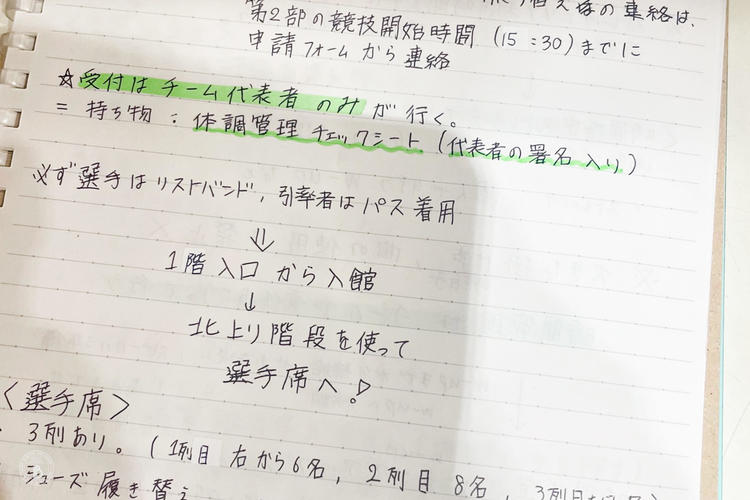 の連絡は、
第2部の競技開始時間 (15:30)までに
申請フォームから連絡
☆受付はチーム代表者のみが行く。
= 持ち物 : 体調管理チェックシート (代表者の署名入り)
必ず選手はリストバンド, 引率者はパス着用
⇓
1階入口から入館
↓
北上り階段を使って
選手席へ!
〈選手席〉
・3列あり。(1列目 右から6名, 2列目 8名, 3列目
・シューズ履き替え